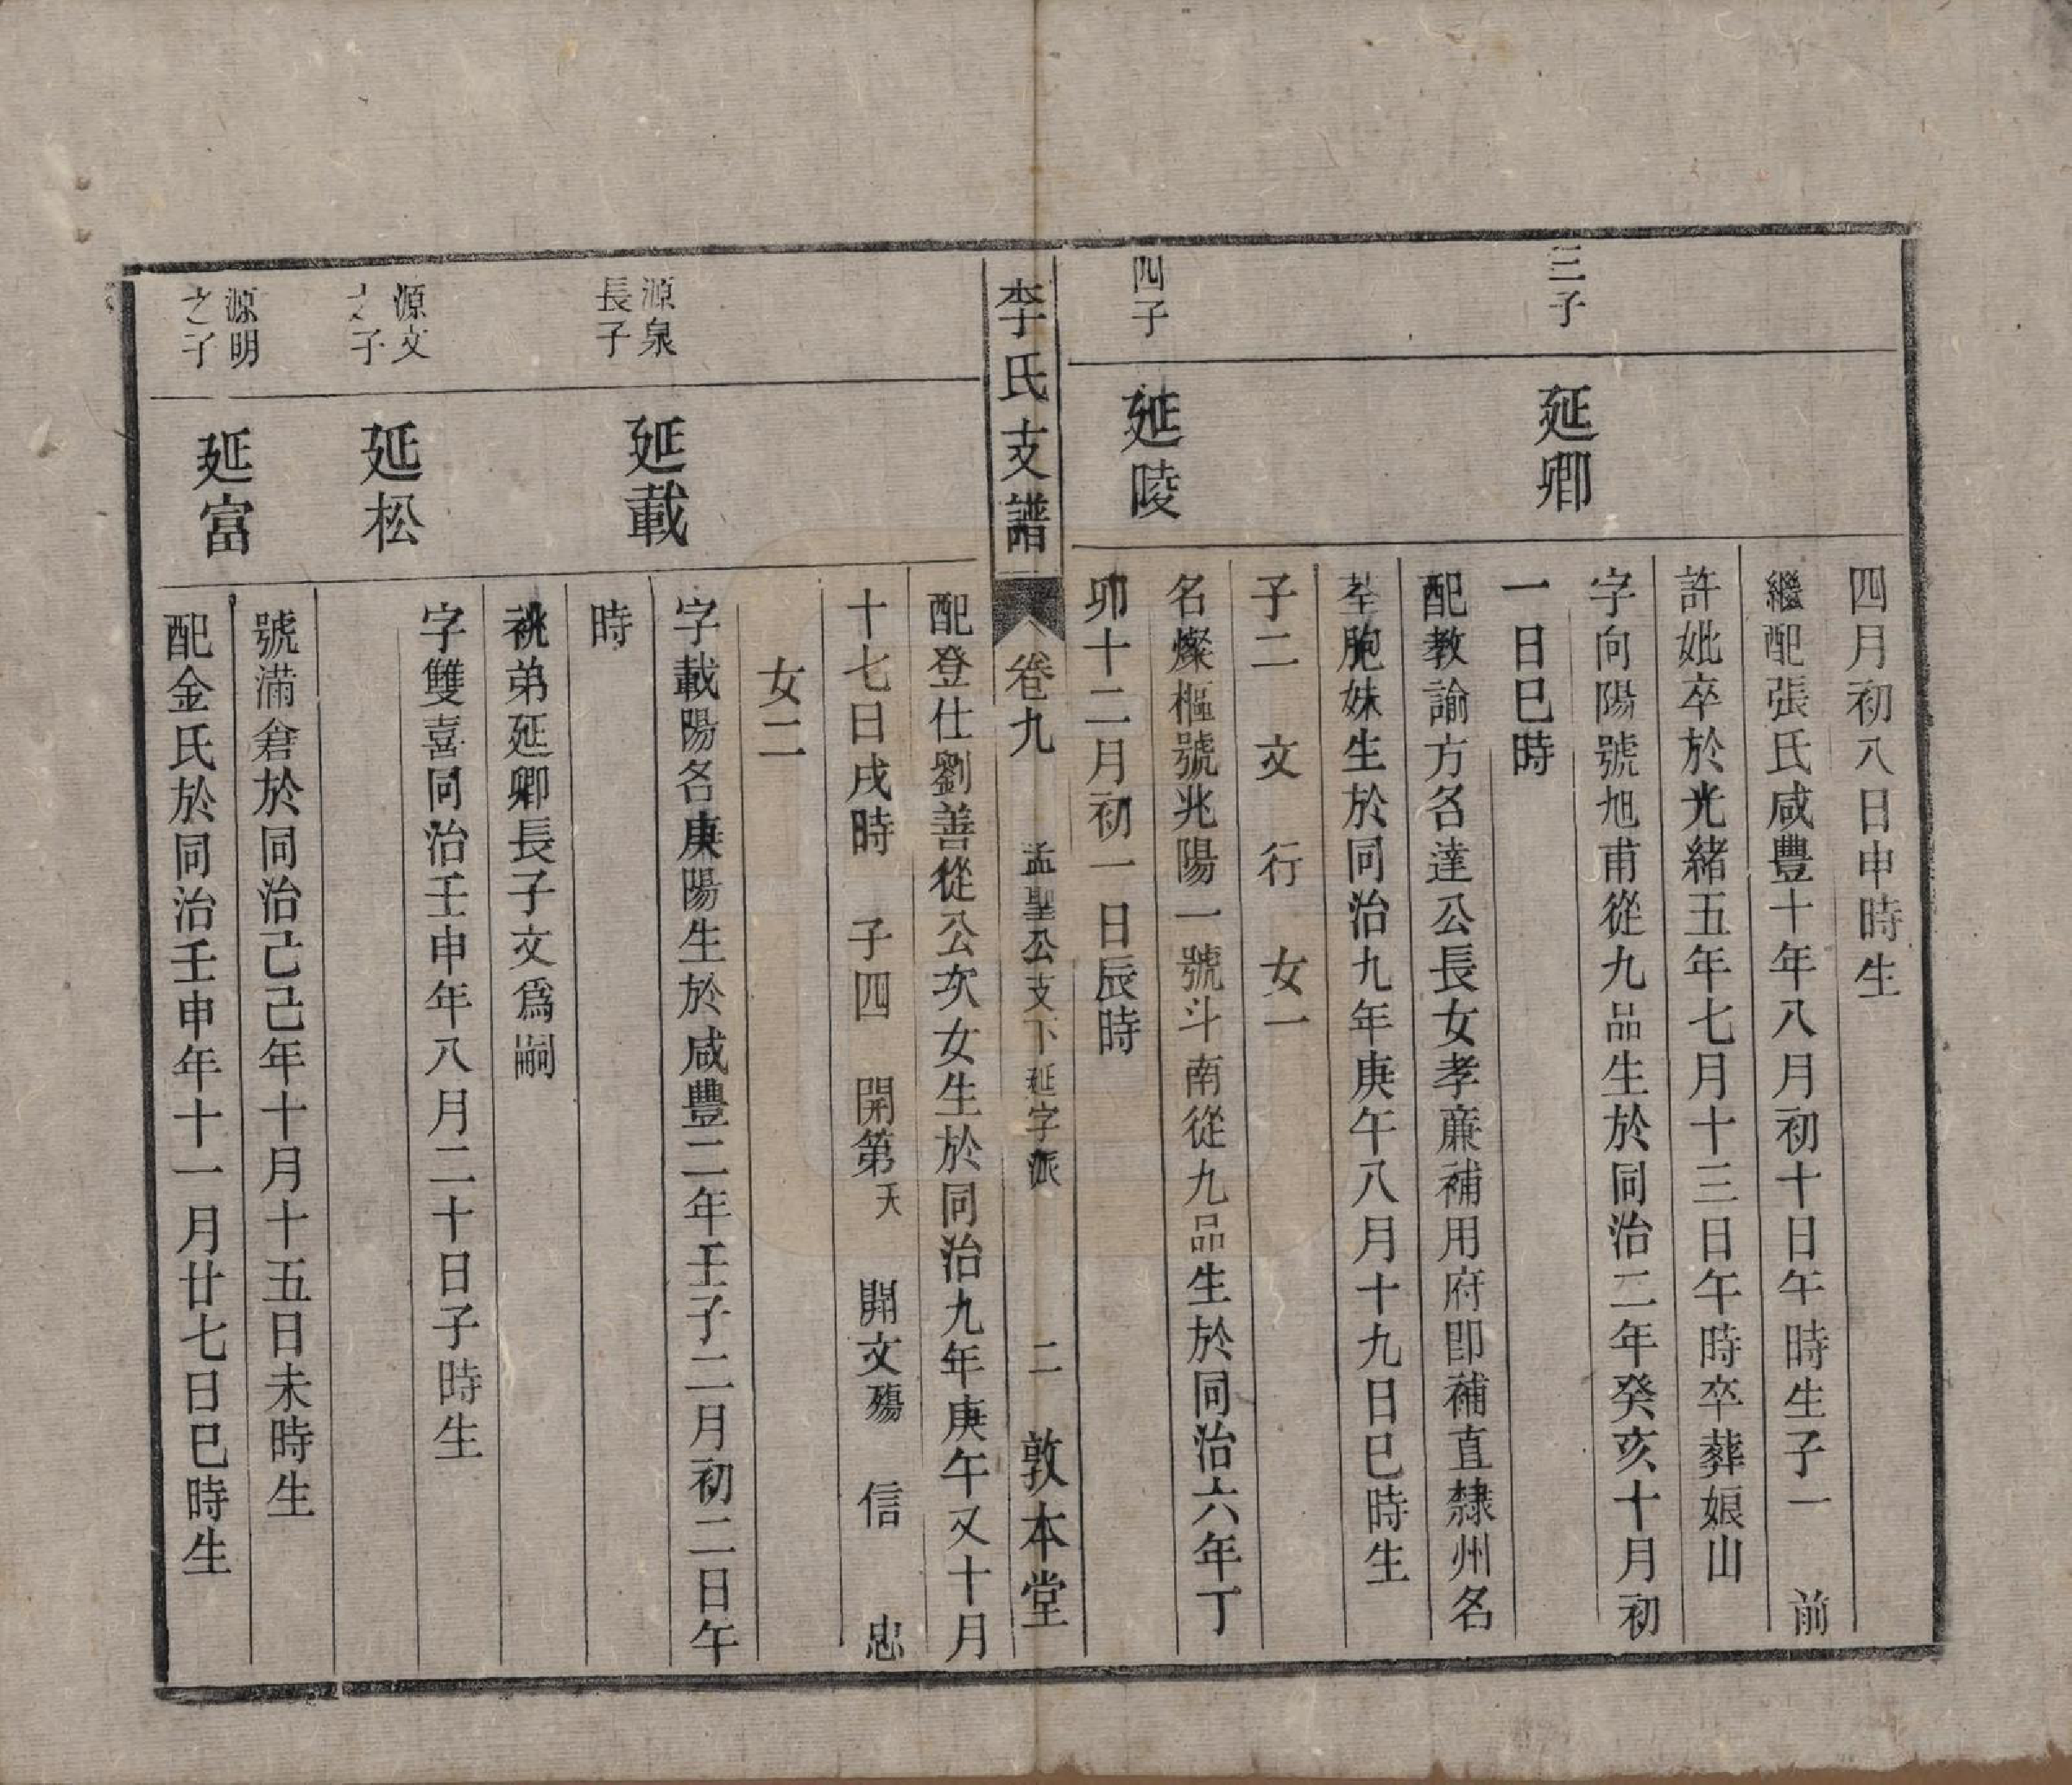 四月初八日申時生
繼配張氏咸豐十年八月初十日午時生子一　前
許妣卒於光緒五年七月十三日午時卒葬娘山
三子
延卿
字向陽號旭甫從九品生於同治二年癸亥十月初
一日巳時
配教諭方名達公長女孝廉補用府即補直隸州名
荃胞妹生於同治九年庚午八月十九日巳時生
子二　文　行　女一
四子
延陵
名燦樞號兆陽一號斗南從九品生於同治六年丁
卯十二月初一日辰時
李氏支譜　卷九　孟聖公支下延字派　二　敦本堂
配登仕劉善從公次女生於同治九年庚午又十月
十七日戌時　子四　開第天　開文殤　信　忠
女二
源泉
長子
延載
字載陽名庚陽生於咸豐二年壬子二月初二日午
時
祧弟延卿長子文爲嗣
源文
之子
延松
字雙喜同治壬申年八月二十日子時生
源明
之子
延富
號滿倉於同治己巳年十月十五日未時生
配金氏於同治壬申年十一月廿七日巳時生